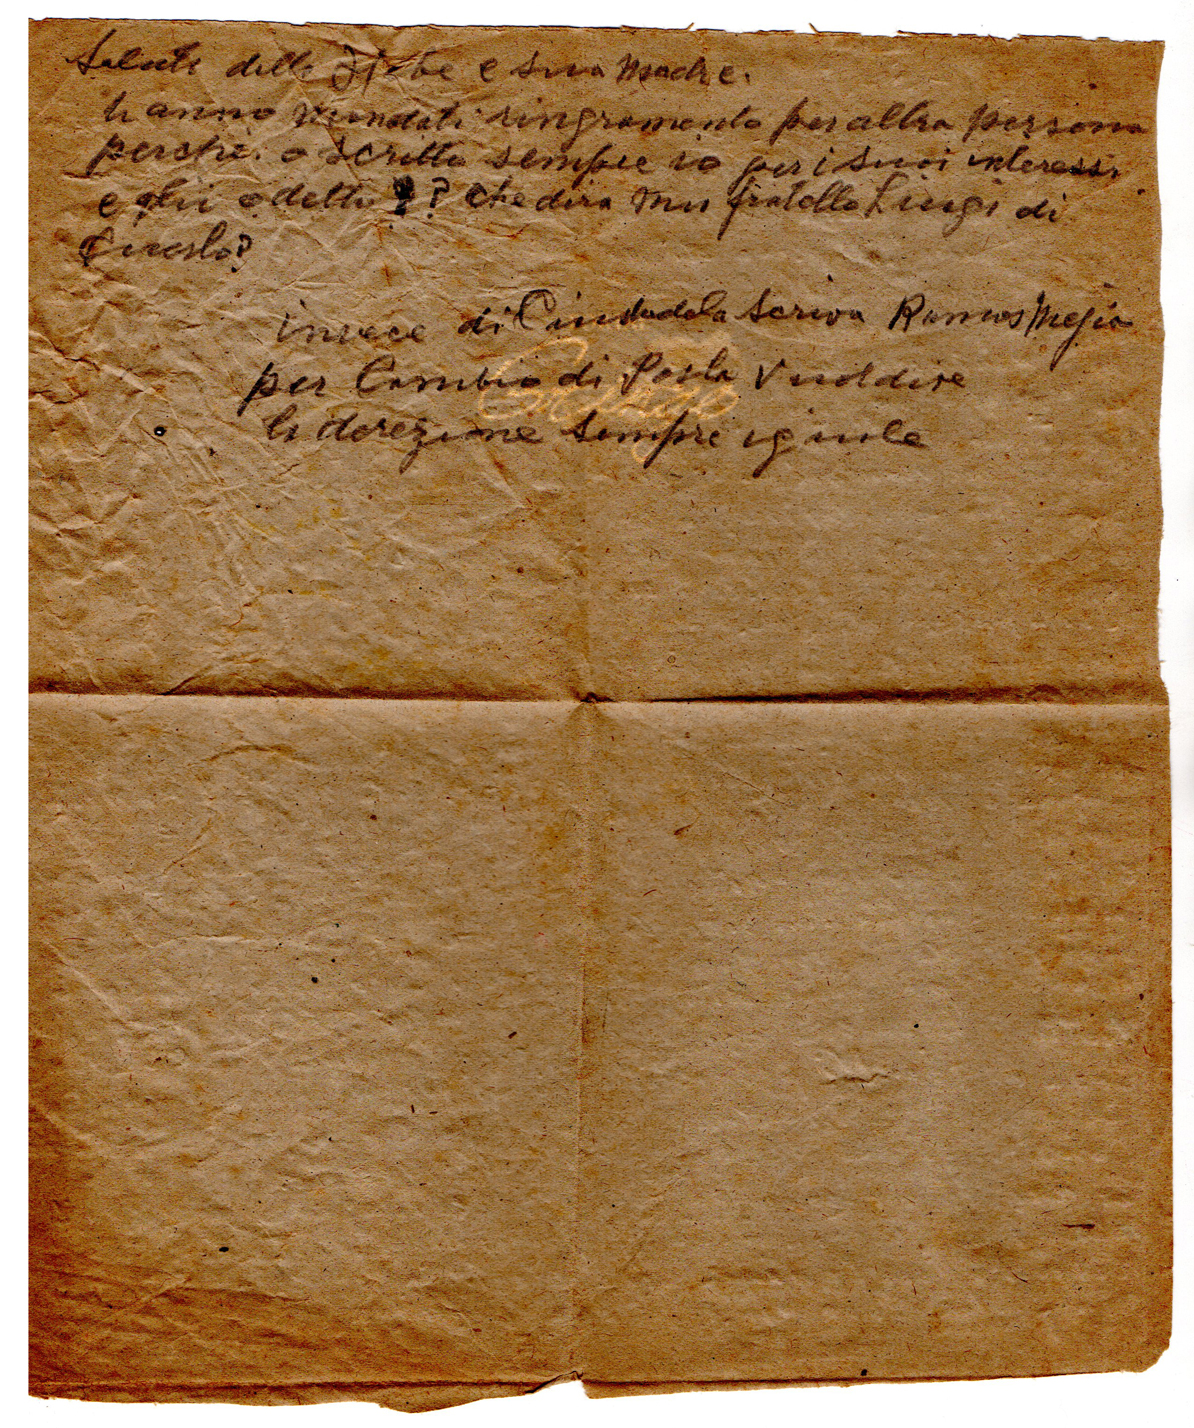 Saluti dalla Hebe e sua Madre.
hanno mandati ringramento per altra persona
perche. o scritto sempre io per i suoi interessi
e gli o detto ? ? che dira mu fratello Luigi di
Questo?
invece di Ciudadela Scriva Ramos Megia
per Cambio di Posta Vuoldire
la derezione Sempre iguale